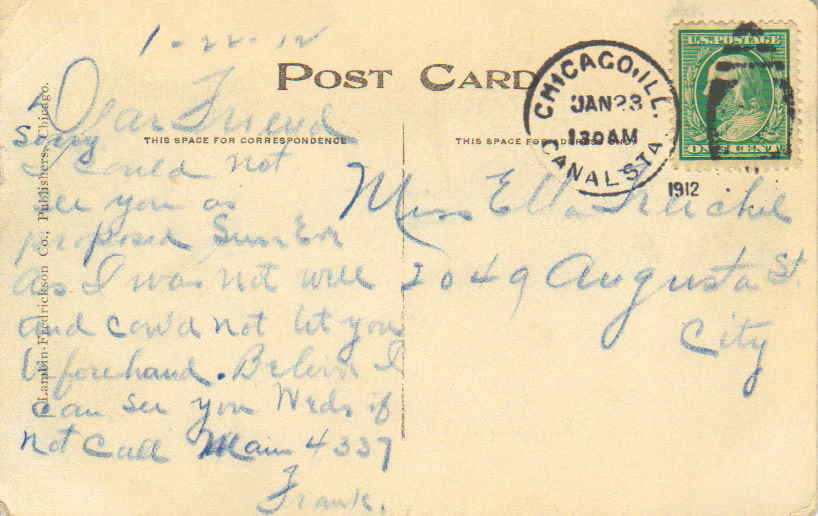 1-22-12
POST CARD
Dear Friend
THIS SPACE FOR CORRESPONDENCE
Sorry
I could not
see you as
proposed Sun Eve
As I was not well
and could not let you
beforehand. Believe I
can see you Weds if
not Call Main 4337
Frank.
Lambin-Fredrickson Co., Publishers, Chicago.
CHICAGO, ILL.
JAN 23
130 AM
1912
CANAL STA
U.S. POSTAGE
ONE CENT
THIS SPACE FOR
ONLY
Miss Ella
2049 Augusta St
City